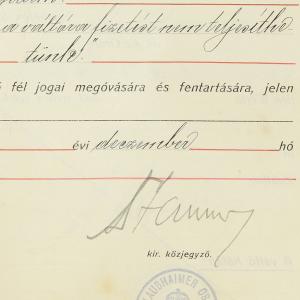 a váltóra fizetést nem teljesíthe
tünk!"
fél jogai megóvására és fentartására, jelen
évi deczember hó
kir. közjegyző.
LAUBHAIMER OS